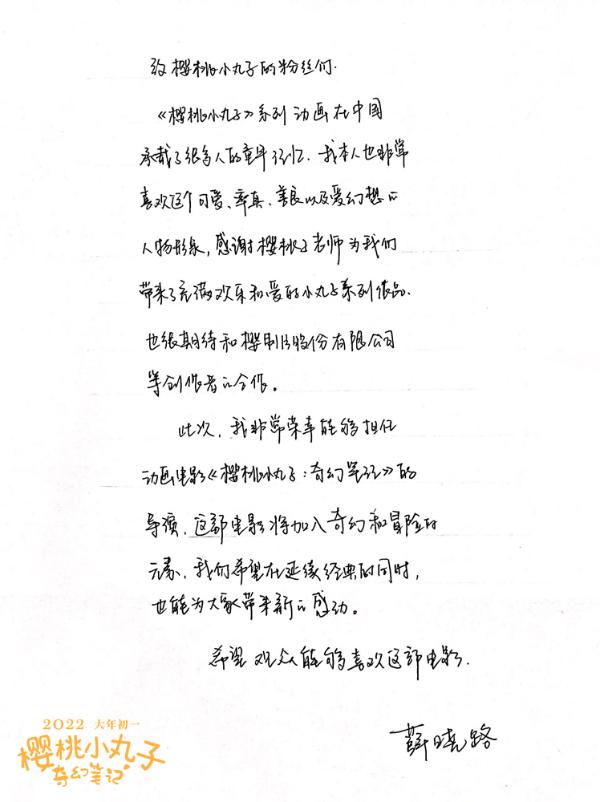 致樱桃小丸子的粉丝们.
《樱桃小丸子》系列动画在中国
承载了很多人的童年记忆. 我本人也非常
喜欢这个可爱、率真、善良以及爱幻想的
人物形象, 感谢樱桃子老师为我们
带来了充满欢乐和爱的小丸子系列作品.
也很期待和樱制作股份有限公司
等创作者的合作。
此次, 我非常荣幸能够担任
动画电影《樱桃小丸子: 奇幻笔记》的
导演. 这部电影将加入奇幻和冒险的
元素. 我们希望在延续经典的同时,
也能为大家带来新的感动。
希望观众能够喜欢这部电影.
薛晓路
2022 大年初一
樱桃小丸子
奇幻笔记